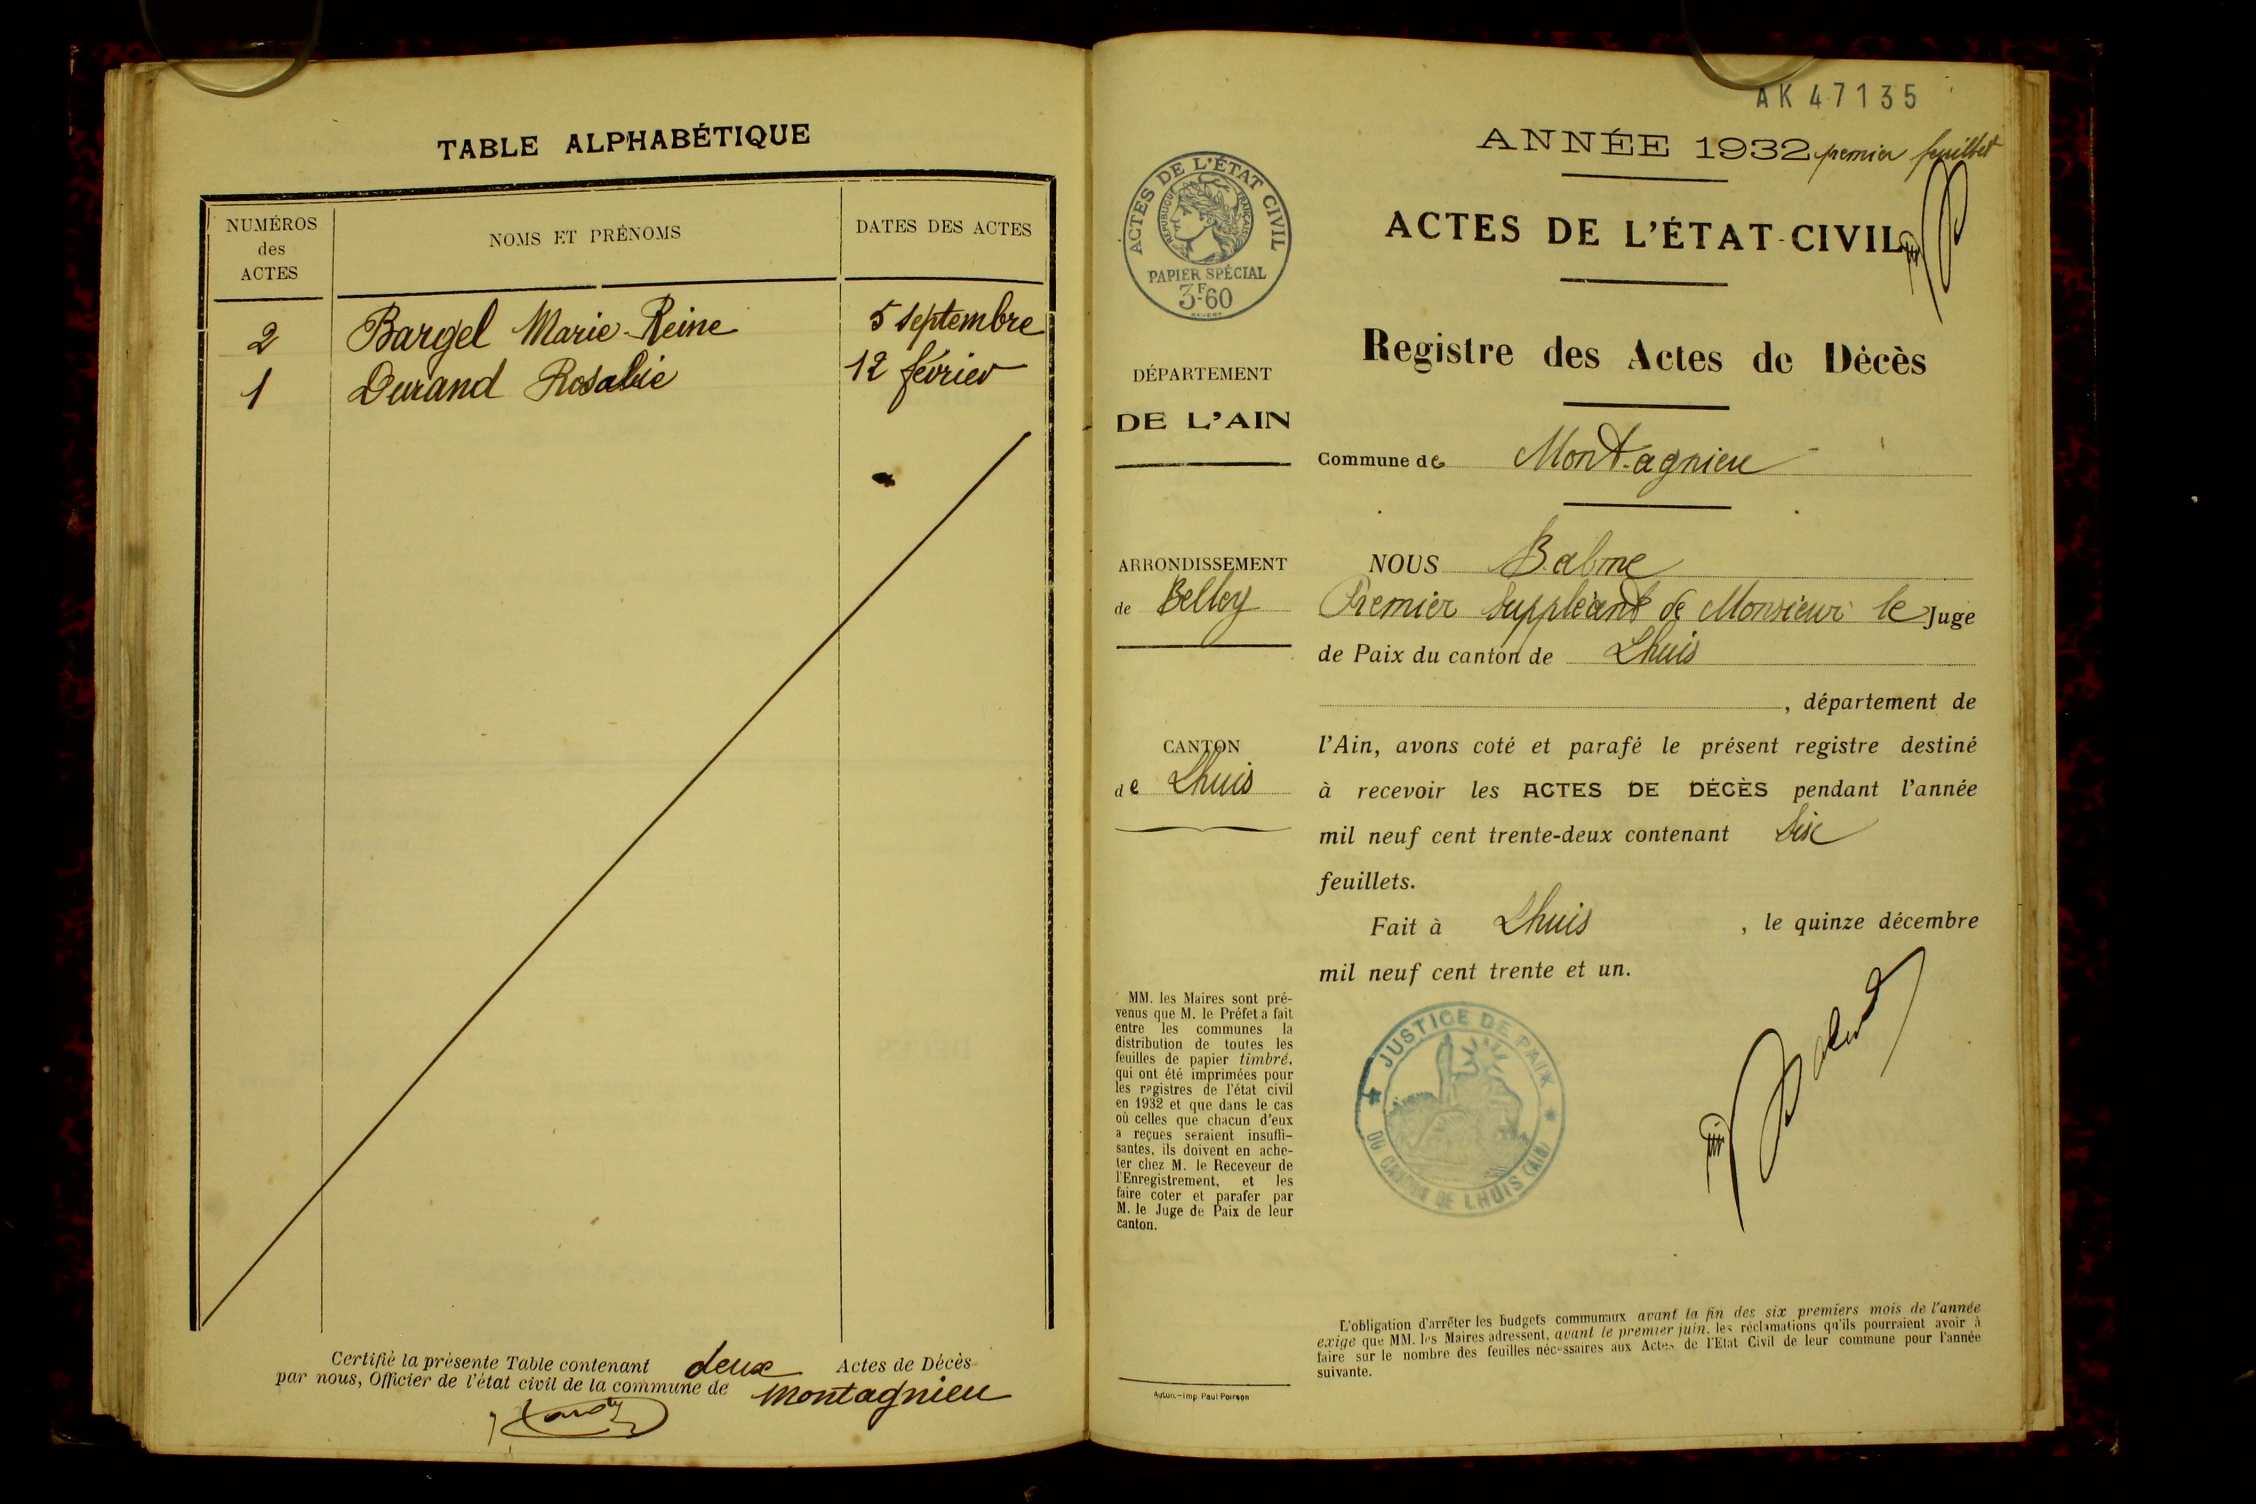 TABLE ALPHABÉTIQUE
NUMÉROS
des
ACTES
NOMS ET PRÉNOMS
DATES DES ACTES
2 Bargel Marie-Reine 5 septembre
1 Durand Rosalie 12 février
Certifié la présente Table contenant deux Actes de Décès
par nous, Officier de l'état civil de la commune de Montagnieu
AK 47135
ANNÉE 1932 premier feuillet
ACTES DE L'ÉTAT CIVIL
RÉPUBLIQUE FRANÇAISE
PAPIER SPÉCIAL
3F60
ACTES DE L'ÉTAT-CIVIL
Registre des Actes de Décès
DÉPARTEMENT
DE L'AIN
Commune de Montagnieu
ARRONDISSEMENT
de Belley
CANTON
de Lhuis
NOUS Balme
Premier Suppléant de Monsieur le Juge
de Paix du canton de Lhuis
, département de
l'Ain, avons coté et parafé le présent registre destiné
à recevoir les ACTES DE DÉCÈS pendant l'année
mil neuf cent trente-deux contenant Six
feuillets.
Fait à Lhuis , le quinze décembre
mil neuf cent trente et un.
MM. les Maires sont pré-
venus que M. le Préfet a fait
entre les communes la
distribution de toutes les
feuilles de papier timbré,
qui ont été imprimées pour
les registres de l'état civil
en 1932 et que dans le cas
où celles que chacun d'eux
a reçues seraient insuffi-
santes, ils doivent en ache-
ter chez M. le Receveur de
l'Enregistrement, et les
faire coter et parafer par
M. le Juge de Paix de leur
canton.
JUSTICE DE PAIX
DU CANTON DE LHUIS (AIN)
L'obligation d'arrêter les budgets communaux avant la fin des six premiers mois de l'année
exige que MM. les Maires adressent, avant le premier juin, les réclamations qu'ils pourraient avoir à
faire sur le nombre des feuilles nécessaires aux Actes de l'Etat Civil de leur commune pour l'année
suivante.
Autun.-Imp. Paul Poirson